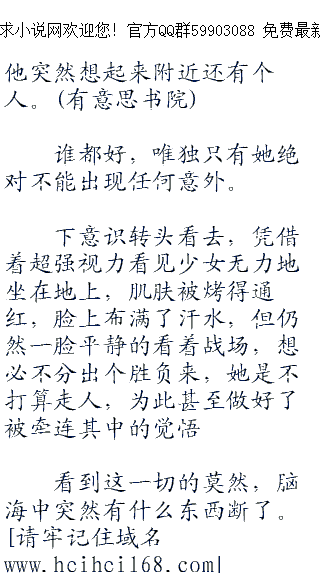 求小说网欢迎您! 官方QQ群59903088 免费最新
他突然想起来附近还有个
人。(有意思书院)
谁都好，唯独只有她绝
对不能出现任何意外。
下意识转头看去，凭借
着超强视力看见少女无力地
坐在地上，肌肤被烤得通
红，脸上布满了汗水，但仍
然一脸平静的看着战场，想
必不分出个胜负来，她是不
打算走人，为此甚至做好了
被牵连其中的觉悟
看到这一切的莫然，脑
海中突然有什么东西断了。
[请牢记住域名
www.hcihci168.com|